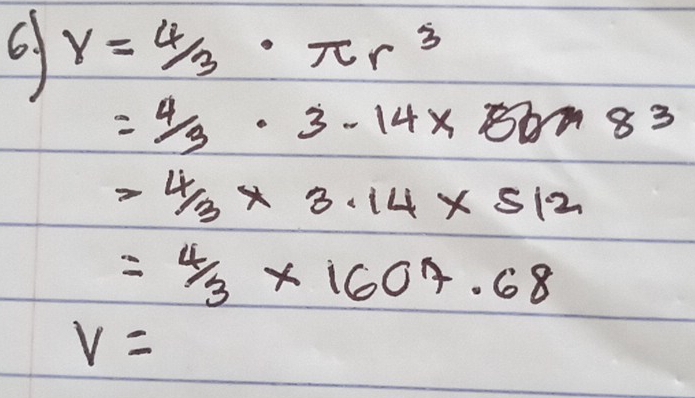 6) V = 4/3 · πr³
= 4/3 · 3.14 × 83
= 4/3 × 3.14 × 512
= 4/3 × 1607.68
V =